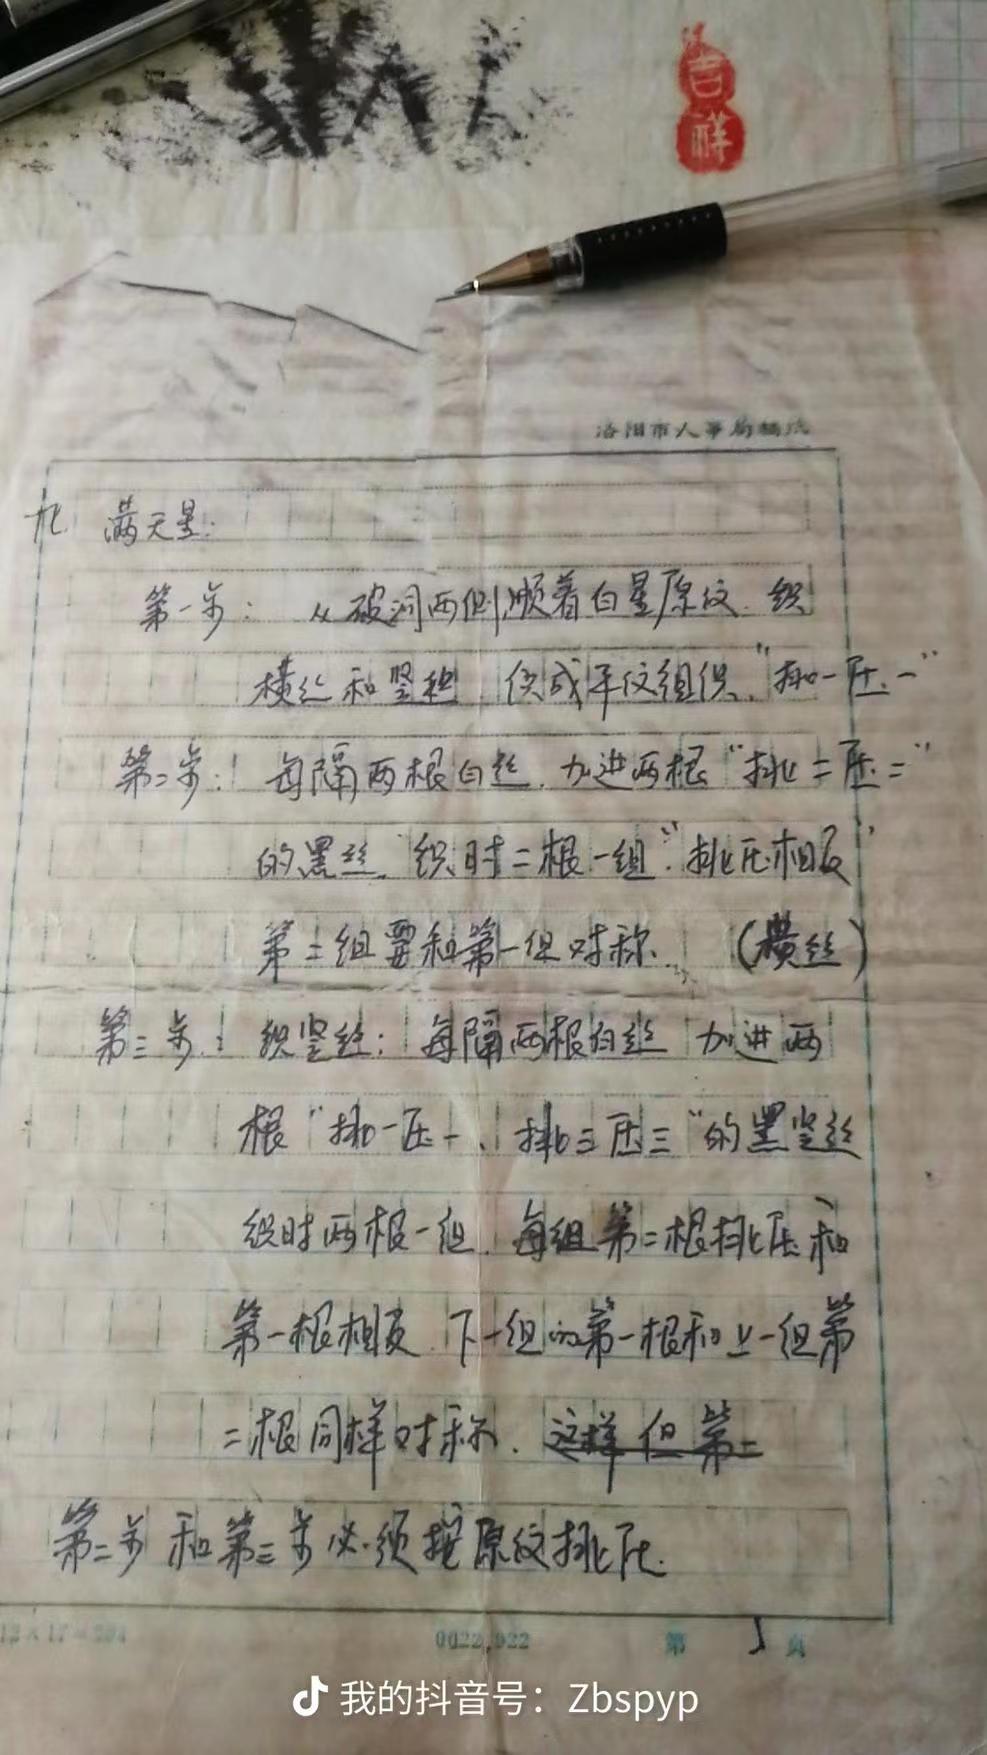 吉祥
洛阳市人事局稿纸
九 满天星:
第一步: 从破洞两侧,顺着白星原纹. 织
横丝和竖丝 使成平纹组织."挑一压一"
第二步: 每隔两根白丝. 加进两根"挑二压二"
的黑丝. 织时二根一组."挑压相反"
第二组要和第一组对称. (横丝)
第三步: 织竖丝: 每隔两根白丝 加进两
根"挑一压一、挑三压三"的黑竖丝
织时两根一组. 每组第二根挑压和
第一根相反. 下一组的第一根和上一组第
二根同样对称. 这样但第二
第二步和第三步必须按原纹挑压.
12×17=204 0022.922 第 5 页
我的抖音号：Zbspyp